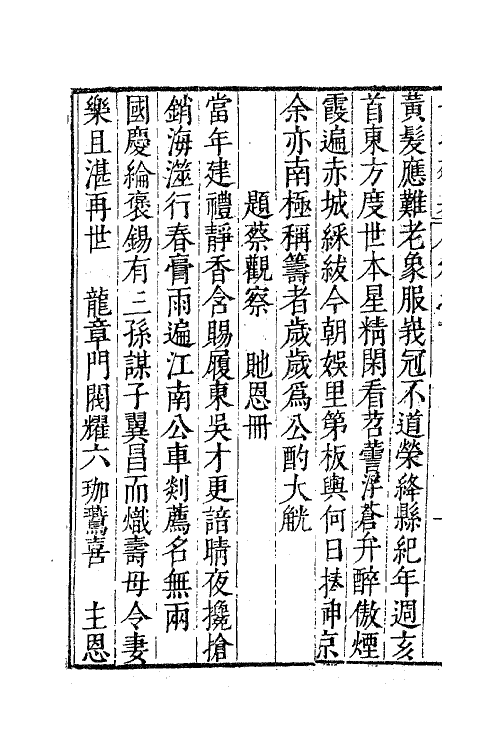 黃髮應難老象服峩冠不道榮絳縣紀年週亥
首東方度世本星精閑看苕霅浮蒼弁醉傲煙
霞遍赤城綵紱今朝娛里第板輿何日捧神京
余亦南極稱籌者歲歲爲公酌大觥
題蔡觀察　貤恩冊
當年建禮靜香含賜履東吳才更諳晴夜攙搶
銷海澨行春膏雨遍江南公車剡薦名無兩
國慶綸褒錫有三孫謀子翼昌而熾壽母令妻
樂且湛再世　龍章門閥耀六珈驚喜　主恩